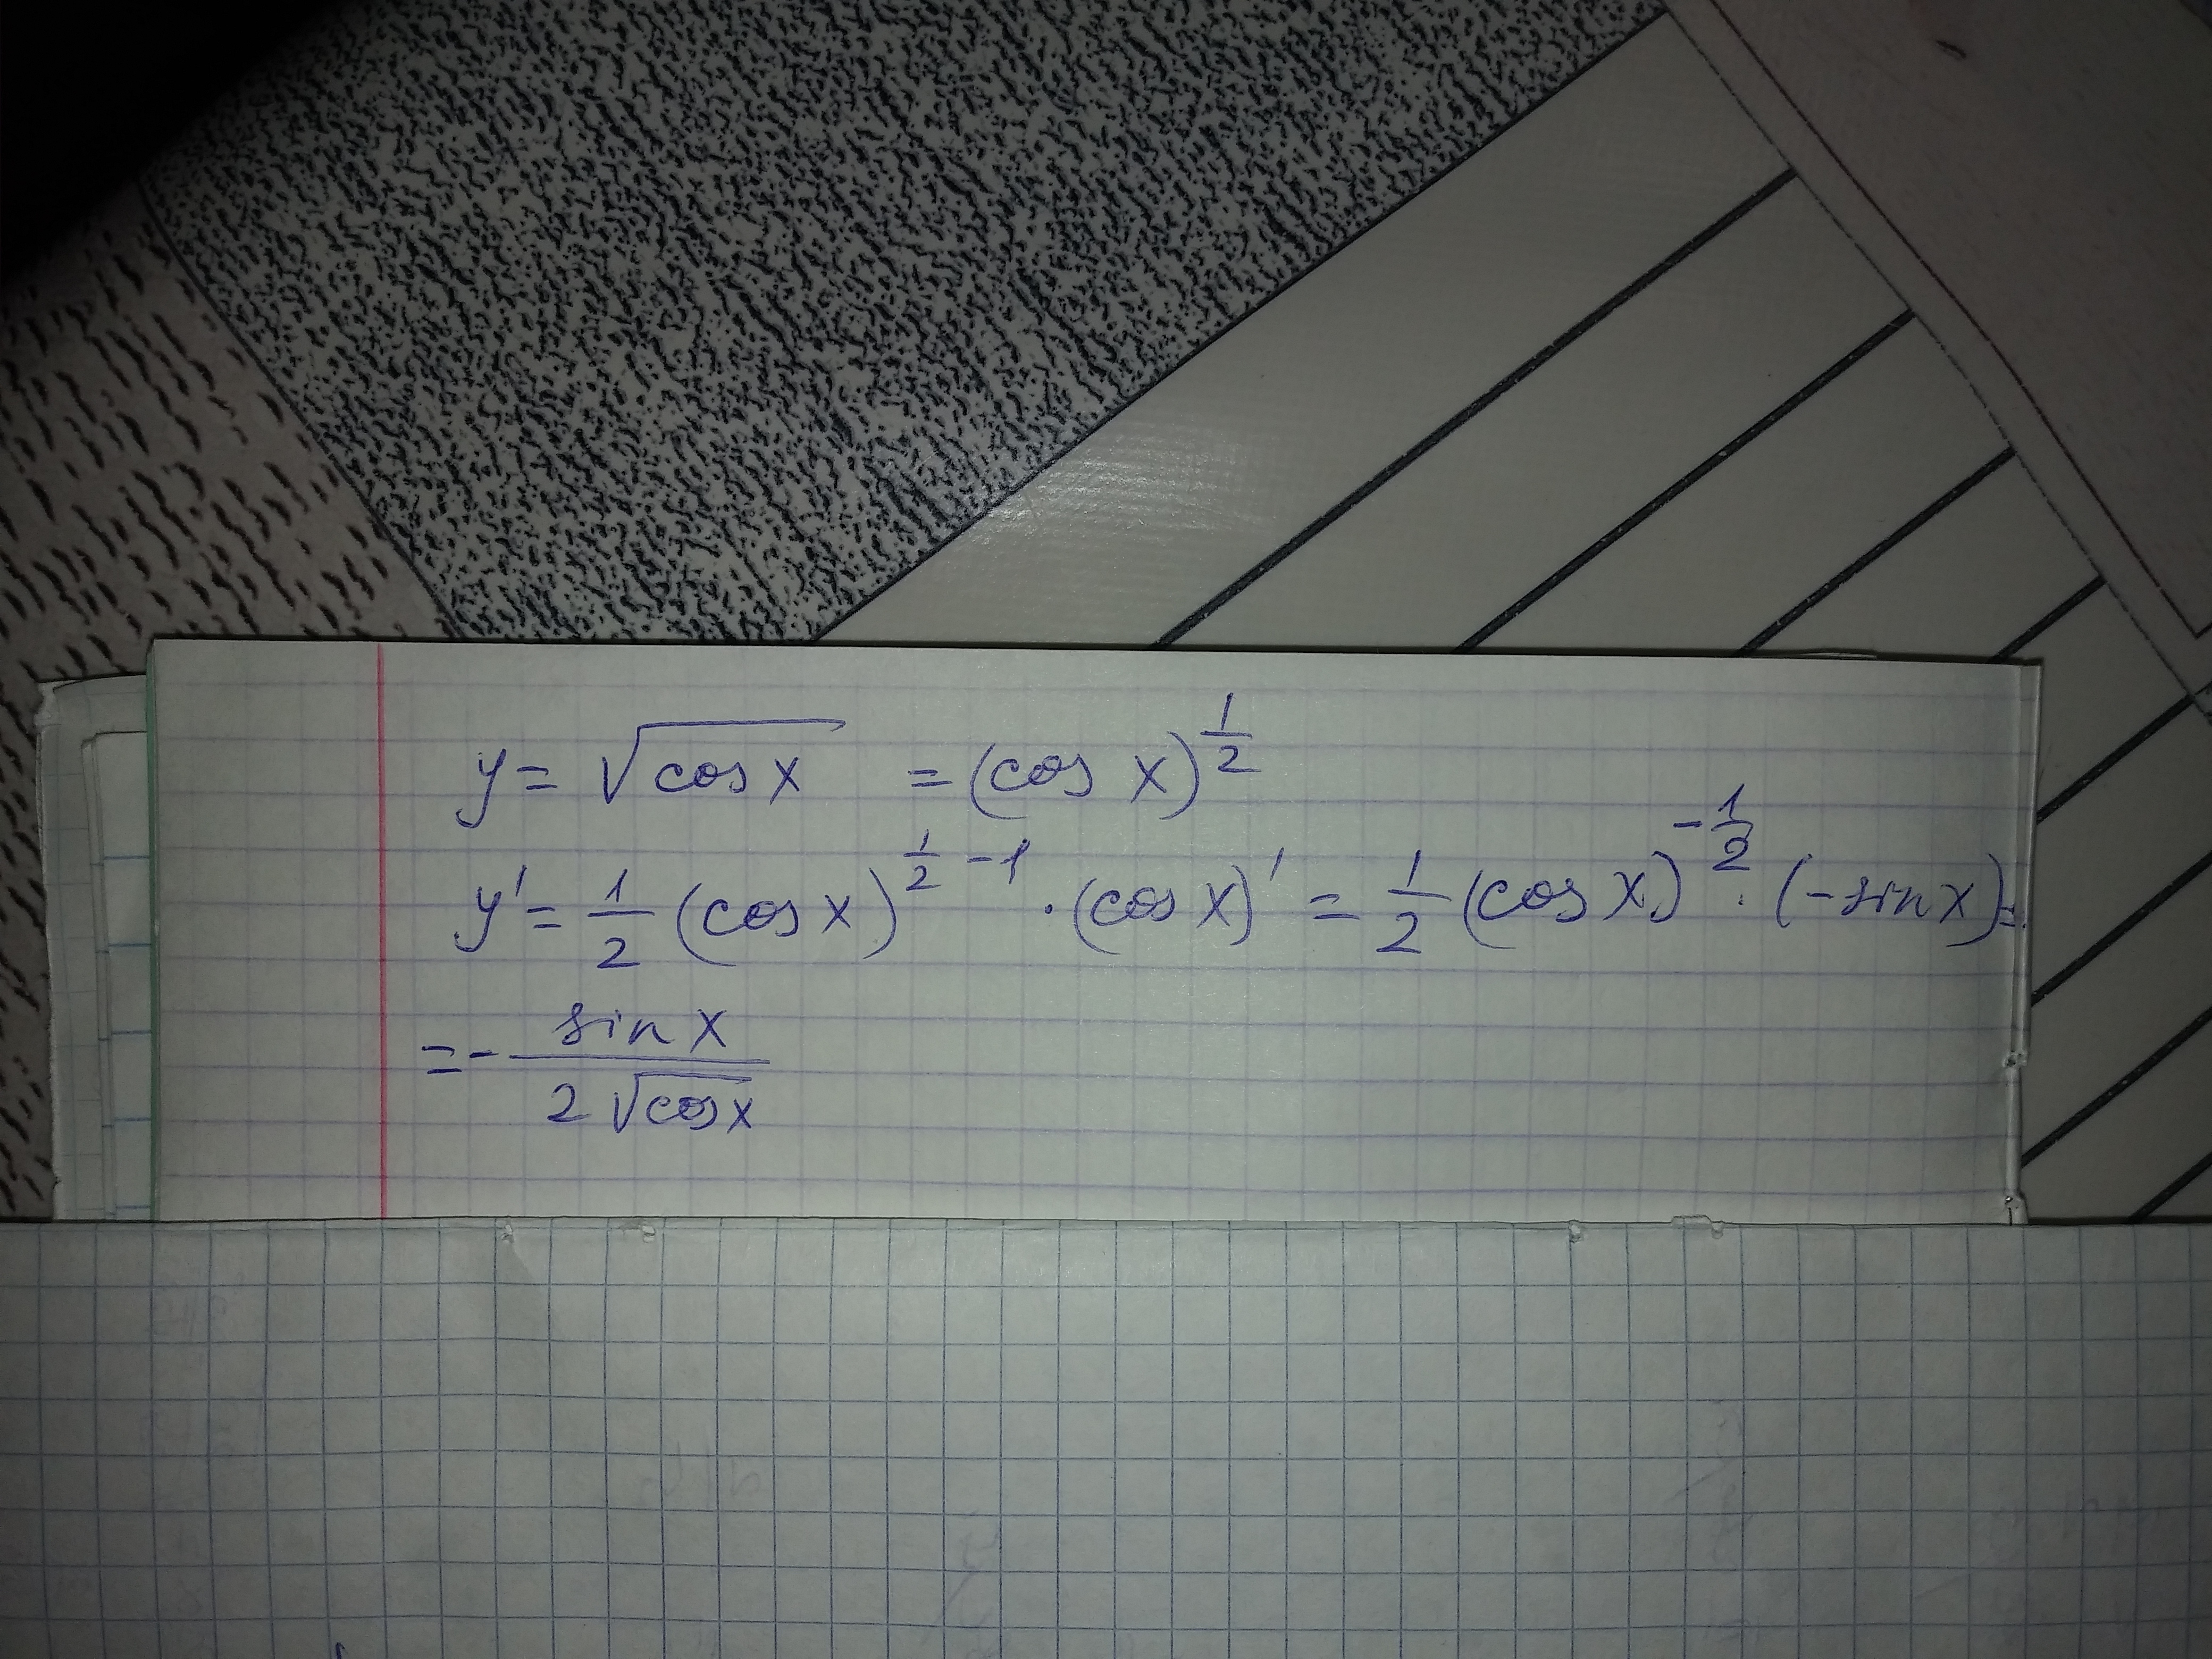 y = √cos x = (cos x)^(1/2)
y' = 1/2 (cos x)^(1/2 - 1) · (cos x)' = 1/2 (cos x)^(-1/2) · (-sin x) =
= - sin x / (2 √cos x)